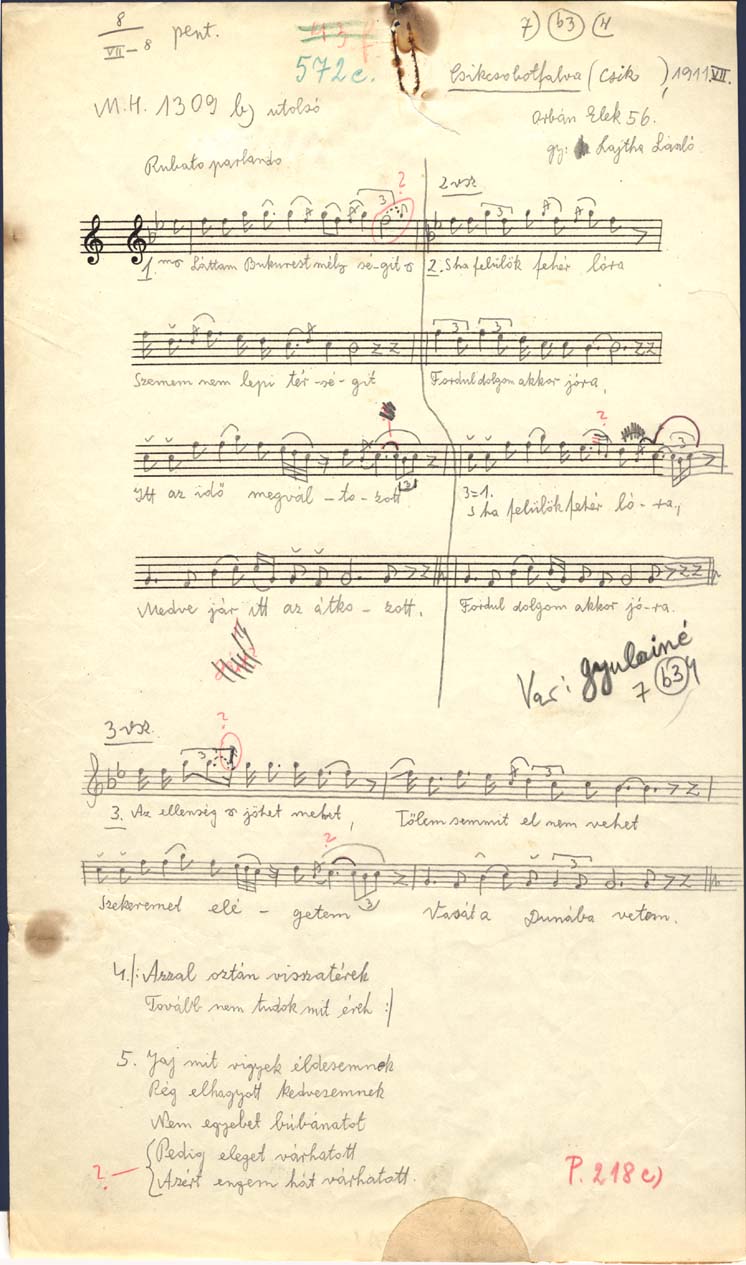 8
VII-8 pent.
437
572c.
7) b3 4
Csikcsobotfalva (Csik), 1911 VII.
M.H. 1309 b) utolsó
Orbán Elek 56.
gy: Lajtha László
Rubato parlando
?
2 vsz
1. Láttam Bukurest mély sé-git
2. S ha felülök fehér lóra
Szemem nem lepi tér-sé-git
Fordul dolgom akkor jóra,
?
Itt az idő megvál-to-zott
3=1.
S ha felülök fehér ló-ra,
Medve jár itt az átko-zott.
Fordul dolgom akkor jó-ra.
Var: gyulainé
7 b3 4
3 vsz.
?
3. Az ellenség jöhet mehet,
Tőlem semmit el nem vehet
?
Szekeremet elé-getem
Vasát a Dunába vetem.
4. /: Azzal osztán visszatérek
Tovább nem tudok mit érek :/
5. Jaj mit vigyek éldesemnek
Rég elhagyott kedvesemnek
Nem egyebet búbánatot
Pedig eleget várhatott
? Azért engem hát várhatott.
P. 218c)